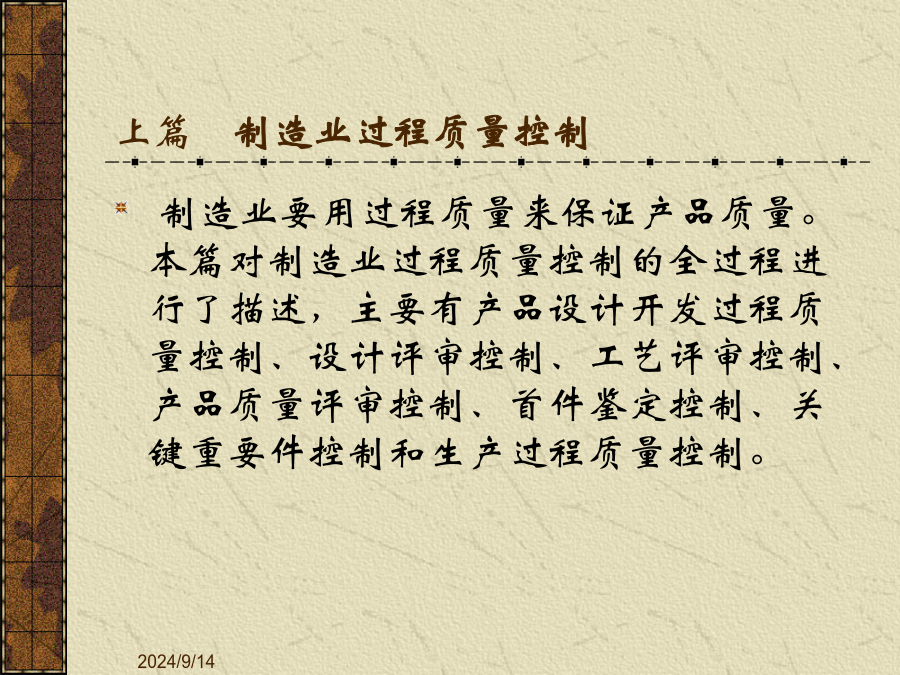 上篇　制造业过程质量控制
制造业要用过程质量来保证产品质量。
本篇对制造业过程质量控制的全过程进
行了描述，主要有产品设计开发过程质
量控制、设计评审控制、工艺评审控制、
产品质量评审控制、首件鉴定控制、关
键重要件控制和生产过程质量控制。
2024/9/14